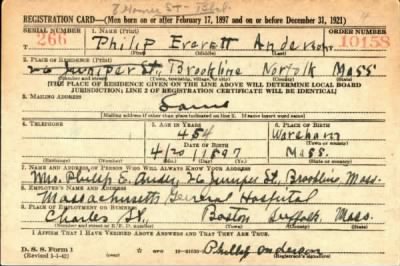 8 Homer St - 
REGISTRATION CARD—(Men born on or after February 17, 1897 and on or before December 31, 1921)
SERIAL NUMBER 1. NAME (Print) ORDER NUMBER
266 Philip Everett Anderson 10158
2. PLACE OF RESIDENCE (Print)
26 Juniper St Brookline Norfolk Mass
(Number and street) (Town, township, village, or city) (County) (State)
[THE PLACE OF RESIDENCE GIVEN ON THE LINE ABOVE WILL DETERMINE LOCAL BOARD
JURISDICTION; LINE 2 OF REGISTRATION CERTIFICATE WILL BE IDENTICAL]
3. MAILING ADDRESS
Same
[Mailing address if other than place indicated on line 2. If same insert word same]
4. TELEPHONE 5. AGE IN YEARS 6. PLACE OF BIRTH
454 Wareham
DATE OF BIRTH (Town or county)
4/20/1897 Mass.
(Exchange) (Number) (Mo.) (Day) (Yr.) (State or country)
7. NAME AND ADDRESS OF PERSON WHO WILL ALWAYS KNOW YOUR ADDRESS
Mrs. Philip E. 26 Juniper St, Brookline Mass.
8. EMPLOYER'S NAME AND ADDRESS
Massachusetts General Hospital
9. PLACE OF EMPLOYMENT OR BUSINESS
Charles St, Boston Suffolk, Mass.
(Number and street or R. F. D. number) (Town) (County) (State)
I AFFIRM THAT I HAVE VERIFIED ABOVE ANSWERS AND THAT THEY ARE TRUE.
D. S. S. Form 1
(Revised 1-1-42) (over)